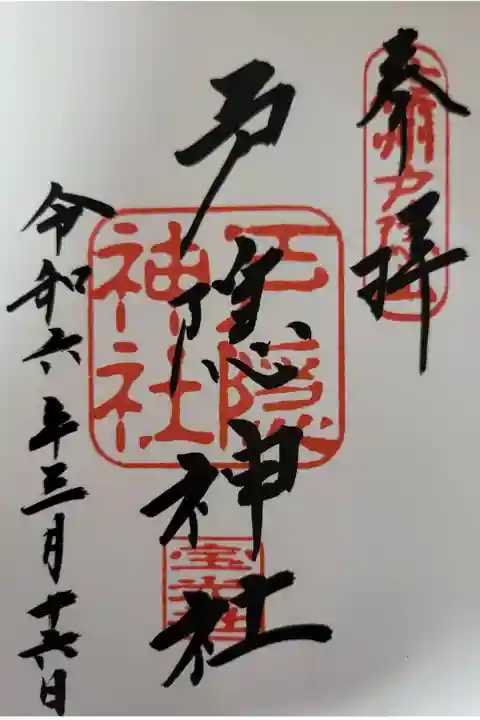 奉拝
戸隠神社
戸隠
神社
宝光社
令和六年三月十六日